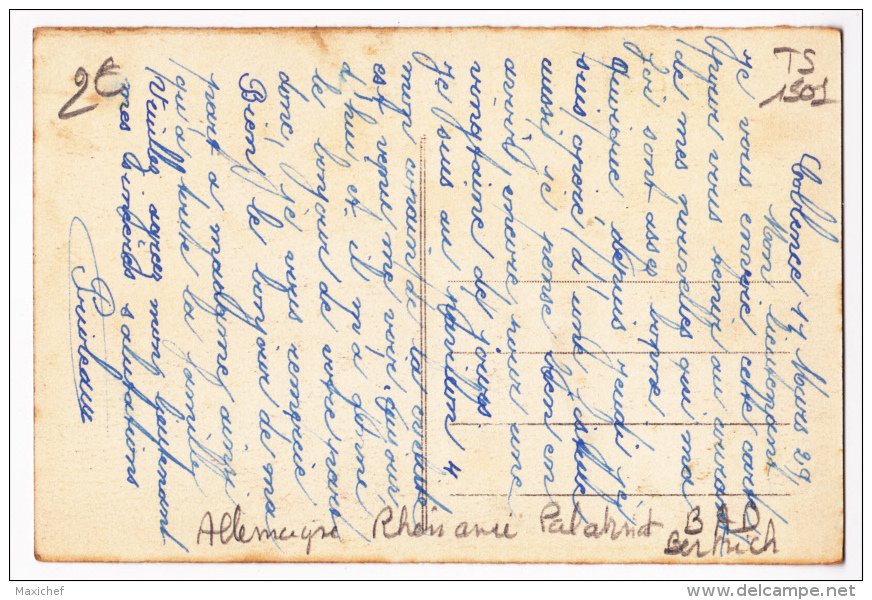 Coblence 17 Mars 29
Mon lieutenant
Je vous envoie cette carte
pour vous tenir au courant
de mes nouvelles qui ma
foi sont asses bonne
quoique depuis jeudi j'ai
suis opéré d'une fistule
aussi je pense bien en
avoir encore pour une
vingtaine de jours
Je suis au Pavillon 4,
mon copain de la
est venu me voir aujour
d'hui et il m'a donné
le bonjour de votre part
donc, je vous remercie
Bien le bonjour de ma
part a madame ainsi
qu'a toute la famille
Veuillez agréer mon lieutenant
mes sincères salutations
TS
1501
2€
Allemagne Rhénanie Palatinat BAD
Bertrich
Maxichef
www.delcampe.net